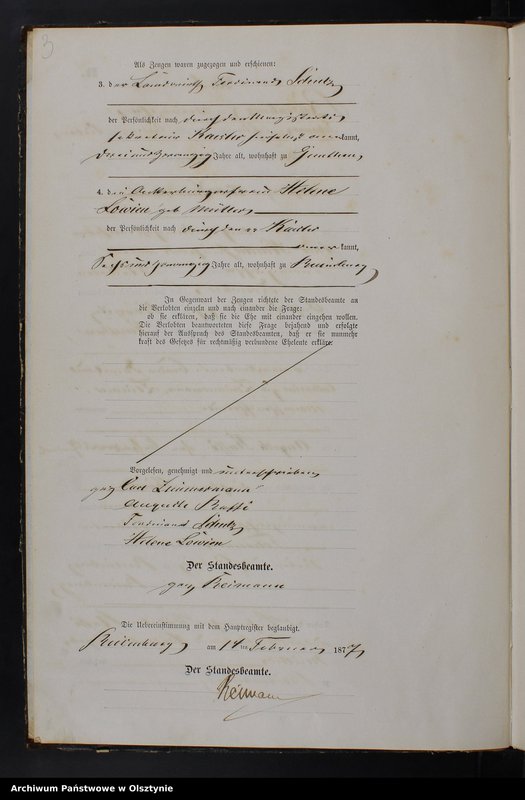 3
Als Zeugen waren zugezogen und erschienen:
3. der Landwirth Ferdinand Schulz
der Persönlichkeit nach durch den
sekretair Kaesler kannt,
dreiundzwanzig Jahre alt, wohnhaft zu
4. die Ackerbürgerfrau Helene
Löwien geb Müller
der Persönlichkeit nach durch den
kannt,
Sechsundzwanzig Jahre alt, wohnhaft zu
In Gegenwart der Zeugen richtete der Standesbeamte an
die Verlobten einzeln und nach einander die Frage:
ob sie erklären, daß sie die Ehe mit einander eingehen wollen.
Die Verlobten beantworteten diese Frage bejahend und erfolgte
hierauf der Ausspruch des Standesbeamten, daß er sie nunmehr
kraft des Gesetzes für rechtmäßig verbundene Eheleute erkläre.
Vorgelesen, genehmigt und unterschrieben
gez Carl Zimmermann
Auguste
Ferdinand Schulz
Helene Löwien
Der Standesbeamte.
gez Reimann
Die Uebereinstimmung mit dem Hauptregister beglaubigt.
am 14 ten Februar 1877
Der Standesbeamte.
Reimann
Archiwum Państwowe w Olsztynie